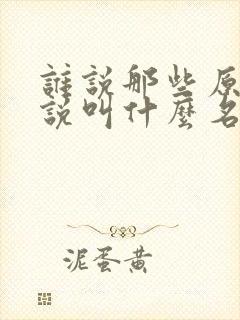 誰說那些原
說叫什麼名
泥蛋黄